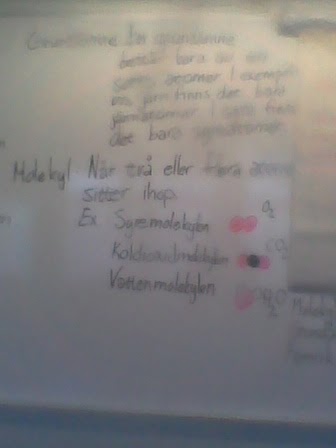 Grundämne Ett grundämne
består bara av en
sorts atomer I exempel
järn finns det bara
järnatomer I
det bara
Molekyl. När två eller flera atomer
sitter ihop.
Ex Syremolekylen O2
Koldioxidmolekylen CO2
Vattenmolekylen H2O
Molekyl